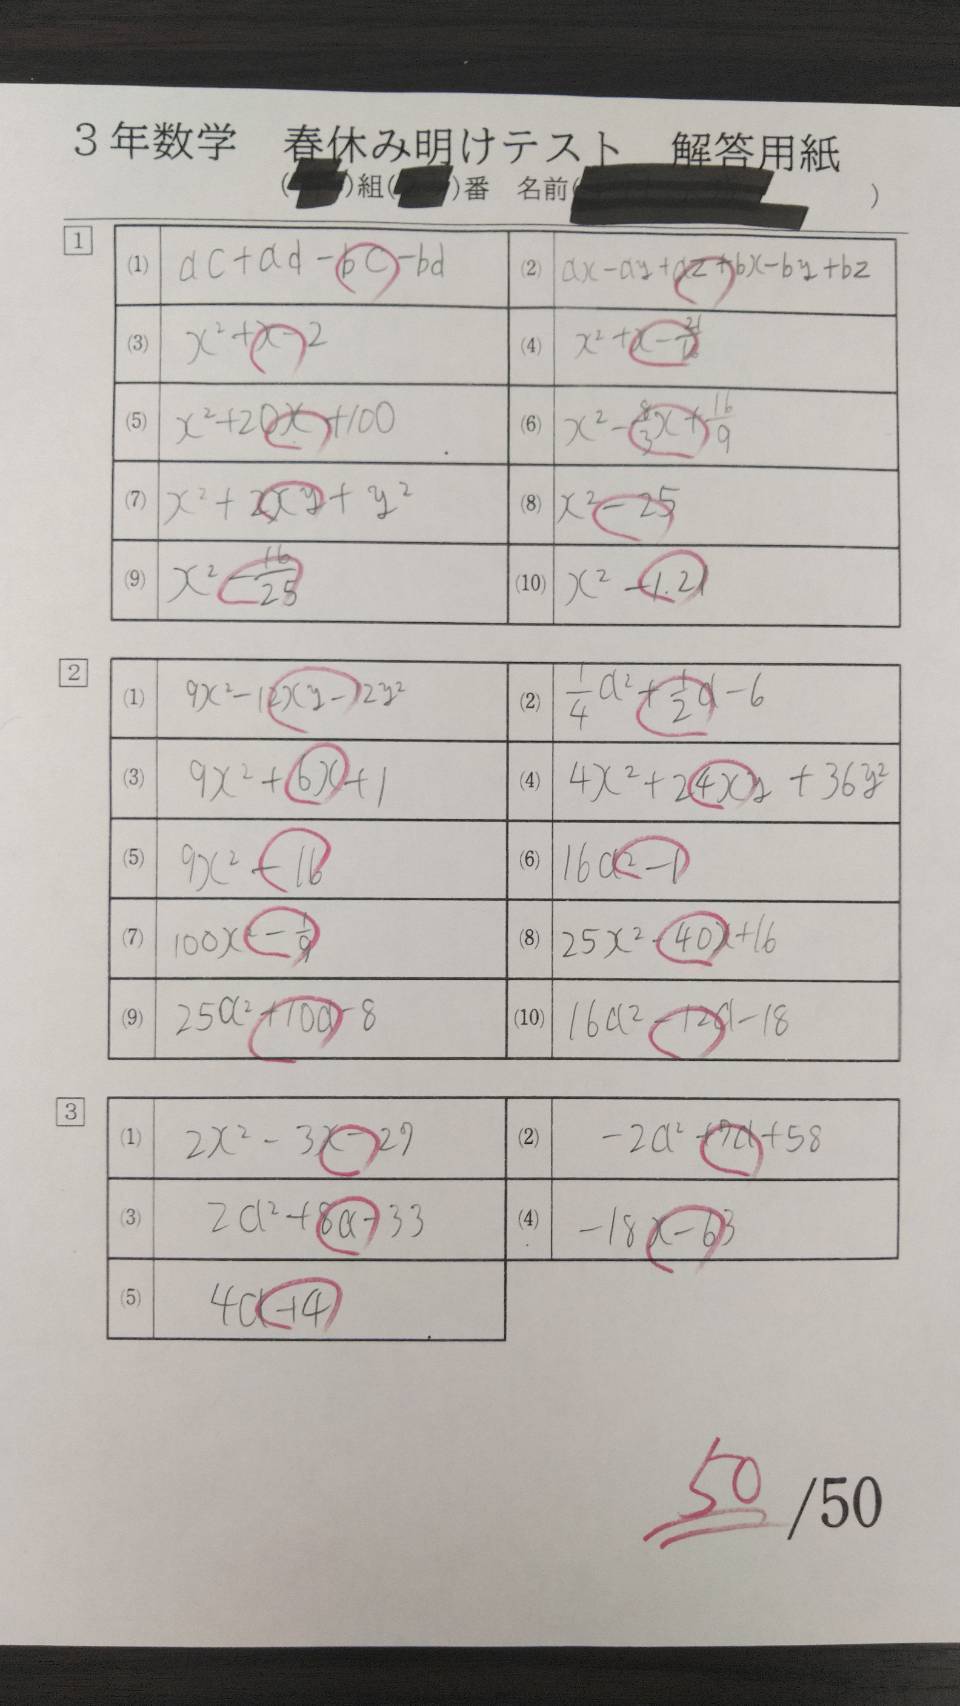 3年数学 春休み明けテスト 解答用紙
( )組( )番 名前( )
1
(1) ac+ad-bc-bd (2) ax-ay+az+bx-by+bz
(3) x²+x-2 (4) x²+x-
(5) x²+20x+100 (6) x²-8/3x+16/9
(7) x²+2xy+y² (8) x²-25
(9) x²-16/25 (10) x²-1.21
2
(1) 9x²-12xy-12y² (2) 1/4a²+1/2a-6
(3) 9x²+6x+1 (4) 4x²+24xy+36y²
(5) 9x²-16 (6) 16a²-1
(7) 100x²-1/9 (8) 25x²-40x+16
(9) 25a²+10a-8 (10) 16a²-12a-18
3
(1) 2x²-3x-27 (2) -2a²+7a+58
(3) 2a²+8a-33 (4) -18x-63
(5) 4a+4
50/50